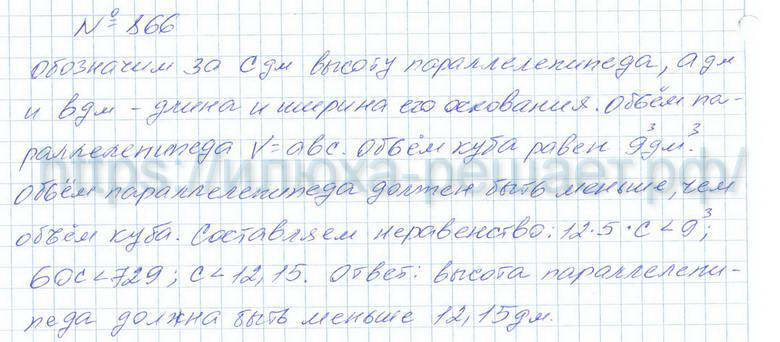 № 866
Обозначим за c дм высоту параллелепипеда, a дм
и b дм - длина и ширина его основания. Объём па-
раллелепипеда V=abc. Объём куба равен 9³дм³.
https://илюха-решает.рф/
Объём параллелепипеда должен быть меньше, чем
объём куба. Составляем неравенство: 12·5·c<9³;
60c<729; c<12,15. Ответ: высота параллелепи-
педа должна быть меньше 12,15дм.